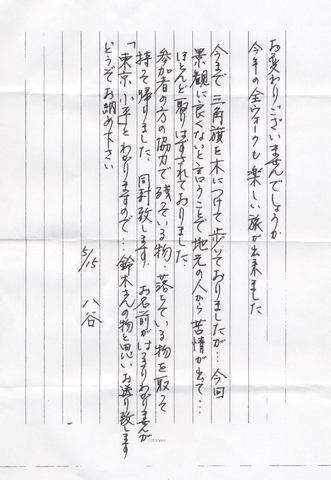 お変わりございませんでしょうか
今年の全ウォークも楽しい旅が出来ました
今まで三角旗を木につけて歩いておりましたが…今回
景観に良くないと言うことで地元の人から苦情が出て…
ほとんど取りはずされておりました.
参加者の方の協力で残っている物.落ちている物を取って
持って帰りました、同封致します お名前がはっきりわかりませんが
「東京 小平」とわかりますので…鈴木さんの物と思いお送り致します
どうぞお納め下さい
5/15 八谷